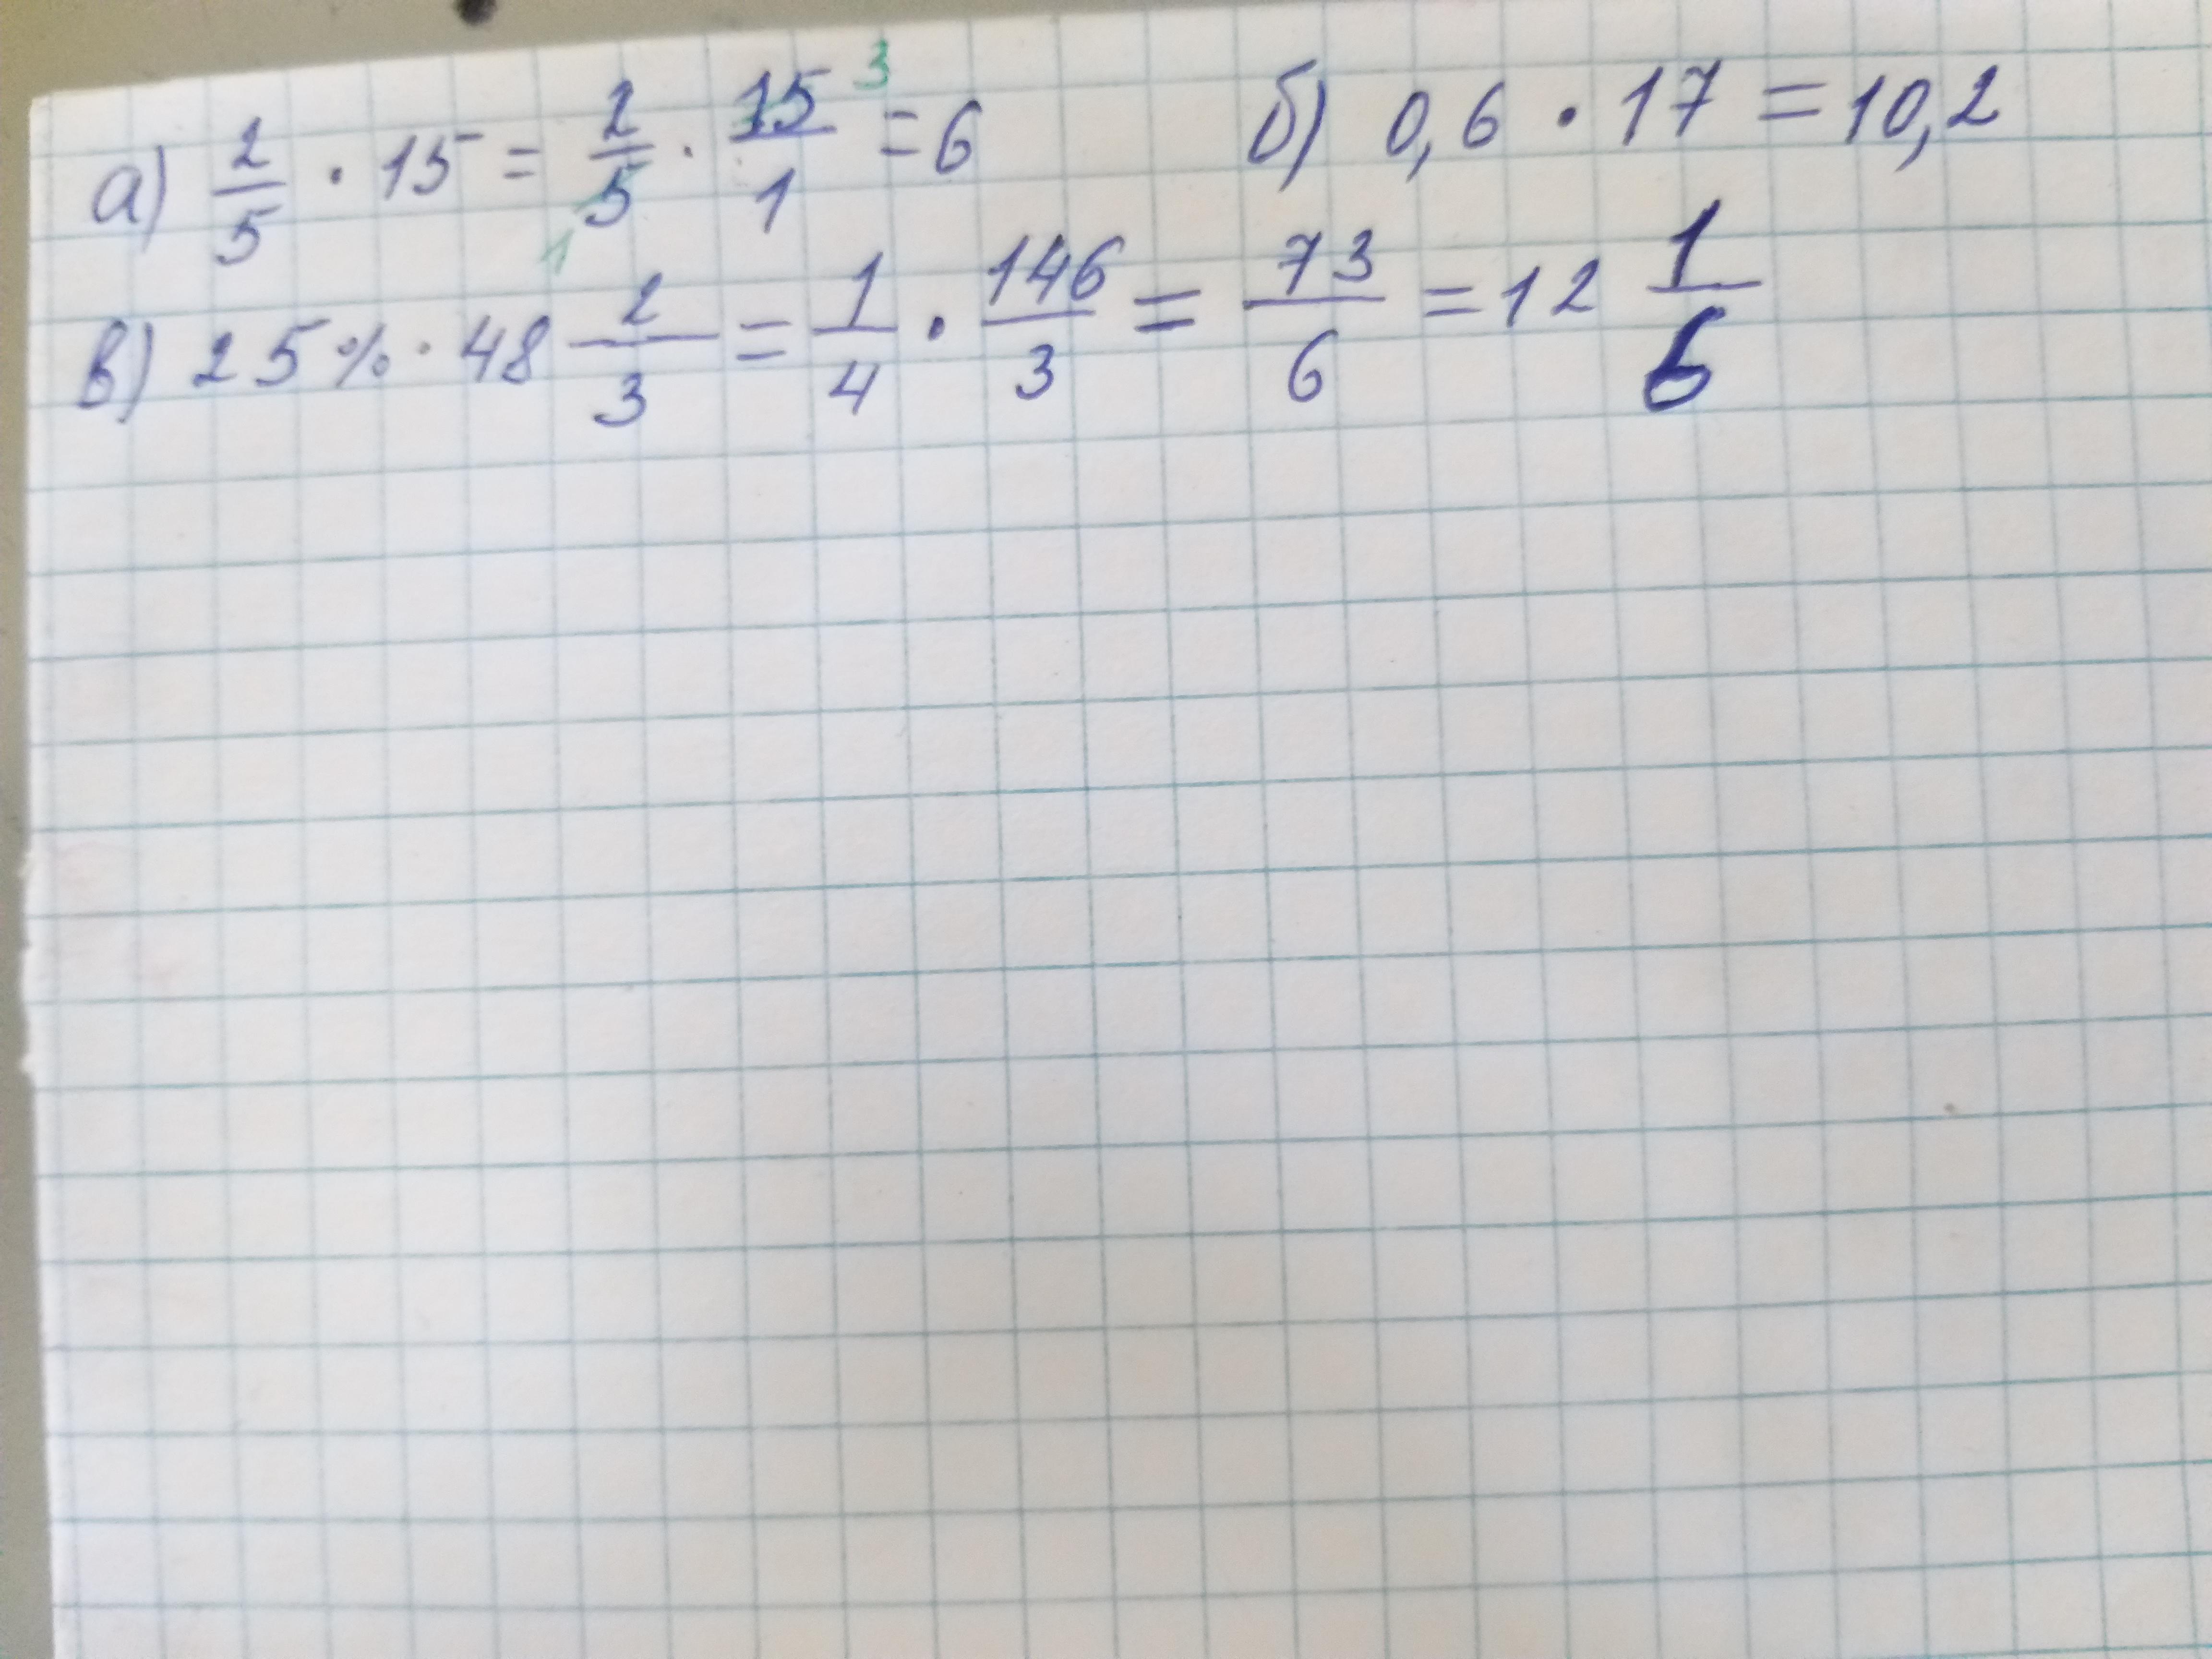 а) 2/5 · 15 = 2/5 · 15/1 = 6 б) 0,6 · 17 = 10,2
3
1
в) 25% · 48 2/3 = 1/4 · 146/3 = 73/6 = 12 1/6